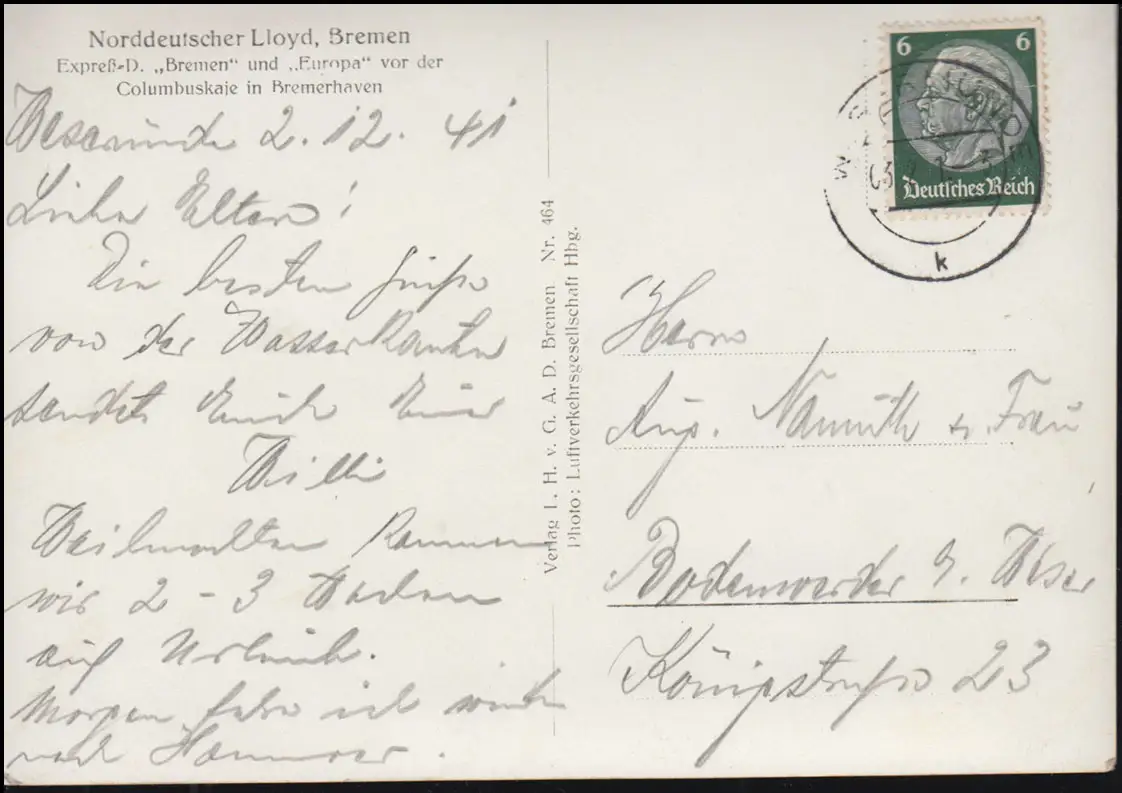 Norddeutscher Lloyd, Bremen
Expreß-D. „Bremen“ und „Europa“ vor der
Columbuskaje in Bremerhaven
Wesermünde 2.12.41
Liebe Eltern!
Die besten Grüße
von der Wasserkante
sendet Euch Euer
Willi
Weihnachten kommen
wir 2 - 3 Wochen
auf Urlaub.
Morgen fahre ich wieder
nach Hannover.
Verlag L. H. v. G. A. D. Bremen Nr. 464
Photo: Luftverkehrsgesellschaft Hbg.
6 6
Deutsches Reich
k
Herrn
Aug. Namuth u. Frau
Bodenwerder a. Weser
Königstraße 23